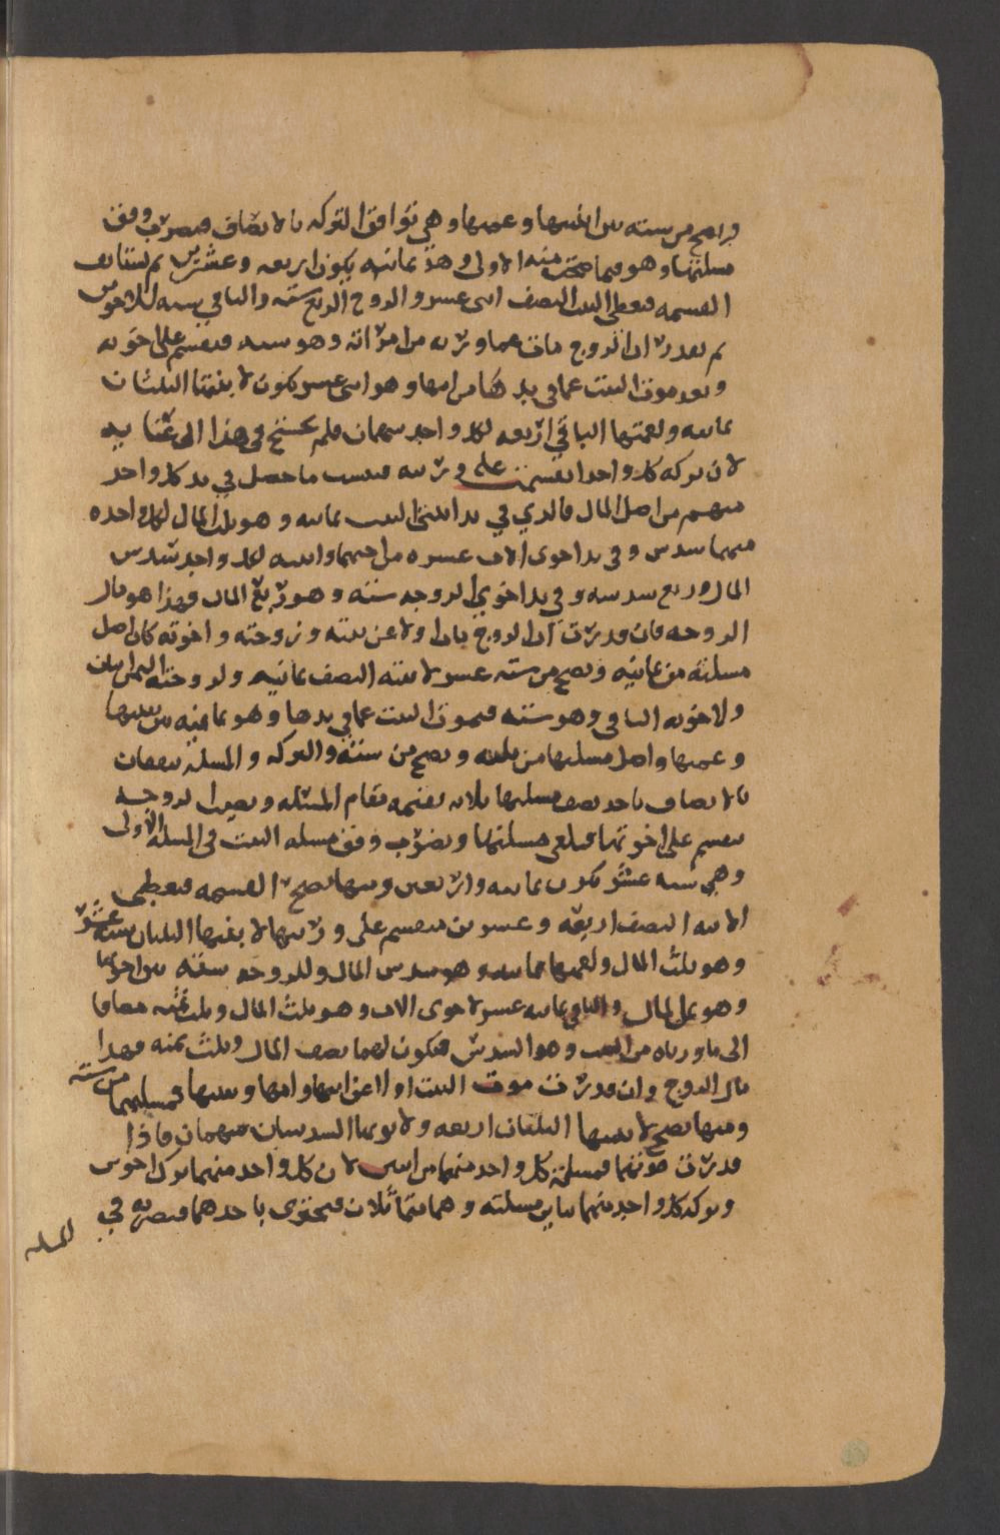 وتصح من ستة بين ابنتيها وعمتها وهي توافق التركة بالانصاف فيضرب وفق
مسلتها وهو فيما صحت منه الاولى وهو ثمانية يكون اربعه وعشرين ثم يستانف
القسمه فيعطي البنت النصف اثنى عشر والزوج الربع سته والباقي سته للاخوين
ثم يقدر ان الزوج مات عما ورثه من امراته وهو سته فيقسم على اخويه
وبعد موت البنت عما في يدها من امها وهو اثنى عشر يكون لابنتها الثلثان
ثمانيه ولعمتها الباقي اربعه لكل واحد سهمان فلم يحتج في هذا الى
لان تركه كل واحد انقسمت على ورثته فينسب ما حصل في يد كل واحد
منهم من اصل المال فالذي في يد ابنتي البنت ثمانيه وهو ثلث المال لكل واحده
منهما سدس وفي يد اخوى الام عشره من اختهما وابنته لكل واحد سدس
المال وربع سدسه وفي يد اخوي الزوجه سته وهو ربع المال فهذا هو مال
الزوجه فان قدرت ان الزوج مات اولا عن بنته وزوجته واخوته كان اصل
مسلته من ثمانيه وتصح من سته عشر لابنته النصف ثمانيه ولزوجته الثمن اثنان
ولاخوته الباقي وهو سته فيموت البنت عما في يدها وهو ثمانيه بين بنتيها
وعمتها واصل مسلتها من ثلثه وتصح من سته والتركه والمسله متفقان
بالانصاف ناخذ نصف مسلتها ثلاثه نقيمه مقام المسئله ونصيب الزوجه
منقسم على اخوتها فيلغى مسلتها ويضرب وفق مسله البنت في المسله الاولى
وهي سته عشر يكون ثمانيه واربعين ومنها تصح القسمه فيعطي
الابنه النصف اربعه وعشرين منقسم على ورثتها لابنتيها الثلثان سته عشر
وهو ثلث المال ولعمتها ثمانيه وهو سدس المال وللزوجه سته بين اخوتها
وهو ثمن المال والباقي ثمانيه عشر لاخوى الاب وهو ثلث المال وثلث ثمنه مضافا
الى ما ورثاه من البنت وهو السدس فيكون لهما نصف المال وثلث ثمنه فهذا
مال الزوج وان قدرت موت البنت اولا عن ابيها وامها وبنتيها فمسلتهما من سته
ومنها تصح لابنتيها الثلثان اربعه ولابويها السدسان سهمان فاذا
قدرت موتهما فمسلة كل واحد منهما من اثنين لان كل واحد منهما ترك اخوين
وتركه كل واحد منهما تباين مسلته وهما متماثلان فيجتزى باحدهما فيضربه في
المسله